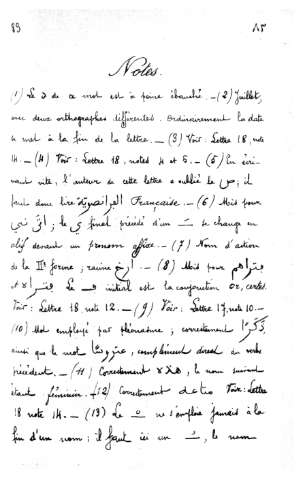 89 ٨٩
Notes.
(1) Le د de ce mot est à peine ébauché. – (2) Juillet,
avec deux orthographes différentes. Ordinairement la date
se met à la fin de la lettre. – (3) Voir: Lettre 18, note
14. – (4) Voir: Lettre 18, notes 4 et 5. – (5) En écri-
vant vite, l'auteur de cette lettre a oublié le ص; il
faut donc lire الفرانصوية Française. – (6) Mis pour
; le ى final précédé d'un َ se change en
alif devant un pronom affixe. – (7) Nom d'action
de la IIe forme; racine ارخ. – (8) Mis pour
et . Le ف initial est la conjonction or, certes.
Voir: Lettre 18 note 12. – (9) Voir: Lettre 17, note 10. –
(10) Mot employé par pléonasme; correctement
ainsi que le mot , complément direct du verbe
précédent. – (11) Correctement , le nom suivant
étant féminin. – (12) Correctement Voir: Lettre
18 note 14. – (13) Le ne s'emploie jamais à la
fin d'un nom; il faut ici un , le nom